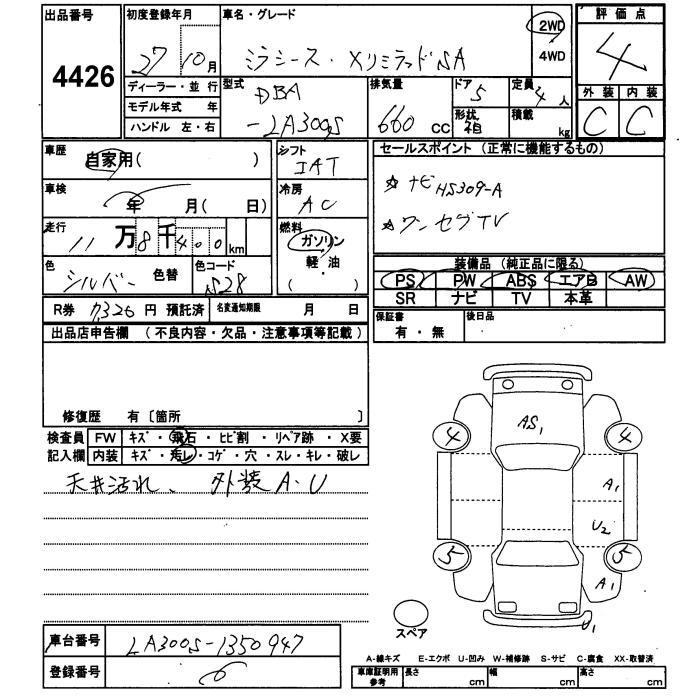 出品番号
4426
初度登録年月
27 10月
ディーラー・並行
モデル年式 年
ハンドル 左・右
車名・グレード
ミラ イース・XリミテッドSA
2WD
4WD
型式
DBA
-LA300S
排気量
660 CC
ドア 5
形状 箱
定員 4人
積載 kg
評価点
4
外装 内装
C C
車歴
自家用( )
車検
年 月( 日)
走行
11万8千400km
色
シルバー 色替
色コード
S28
R券 7,320 円 預託済
名変通知期限 月 日
シフト
IAT
冷房
AC
燃料
ガソリン
軽・油
( )
セールスポイント (正常に機能するもの)
☆ ナビ HS309-A
☆ ワンセグTV
装備品 (純正品に限る)
PS PW ABS エアB AW
SR ナビ TV 本革
保証書
有・無
後日品
出品店申告欄 (不良内容・欠品・注意事項等記載)
修復歴 有〔箇所 〕
検査員 FW キズ・飛石・ヒビ割・リペア跡・X要
記入欄 内装 キズ・汚レ・コゲ・穴・スレ・キレ・破レ
天井汚れ、外装A・U
AS1
4 4
A1
U2
5 5
A1
U1
スペア
車台番号 LA300S-1350947
登録番号
A-線キズ E-エクボ U-凹み W-補修跡 S-サビ C-腐食 XX-取替済
車庫証明用参考 長さ cm 幅 cm 高さ cm